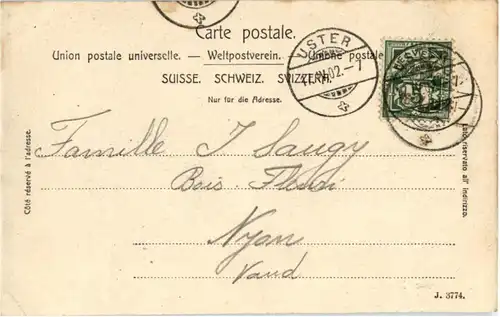 Carte postale.
Union postale universelle. — Weltpostverein. — Unione postale
SUISSE. SCHWEIZ. SVIZZERA.
Nur für die Adresse.
USTER
02.-7
5
Côté réservé à l'adresse.
Lato riservato all' indirizzo.
Famille J Saugy
Bois-Fleuri
Nyon
Vaud
J. 3774.